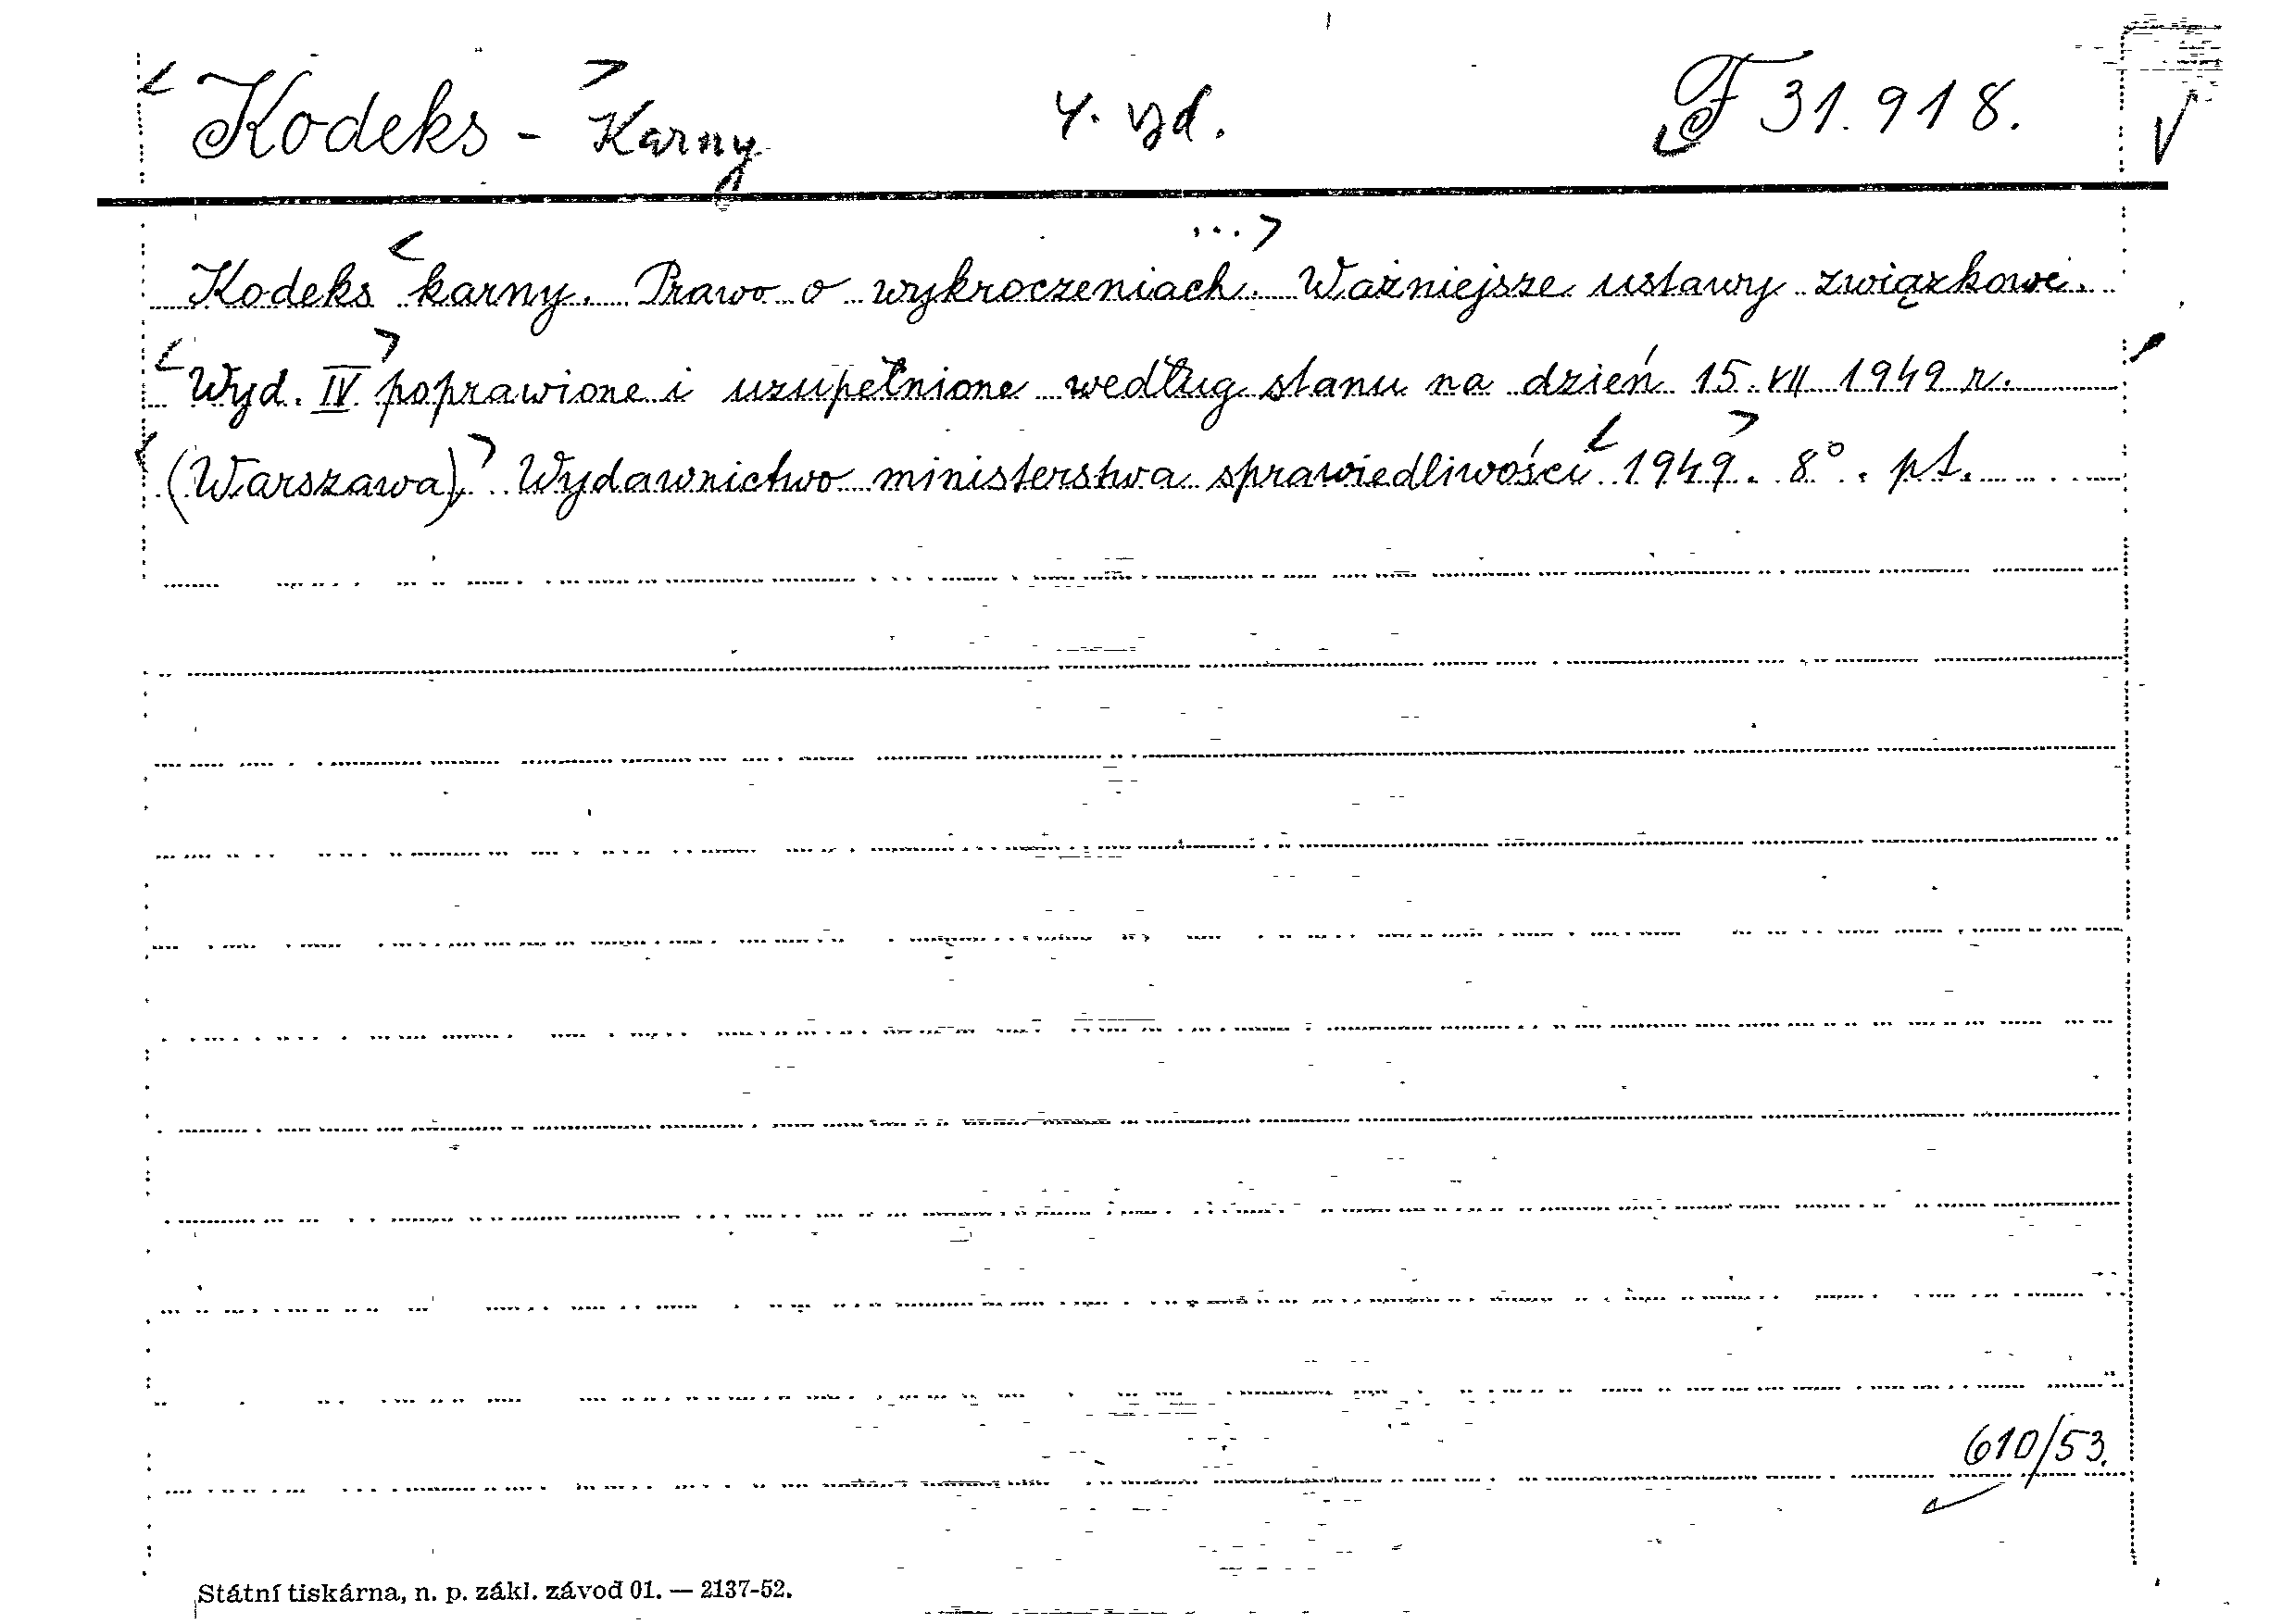 Kodeks - Karny 4. vyd. F 31.918.
Kodeks karny. Prawo o wykroczeniach. ... Ważniejsze ustawy związkowe.
Wyd. IV poprawione i uzupełnione według stanu na dzień 15. VII 1949 r.
(Warszawa), Wydawnictwo ministerstwa sprawiedliwości 1949. 8°. pt.
610/53.
Státní tiskárna, n. p. zákl. závod 01. — 2137-52.